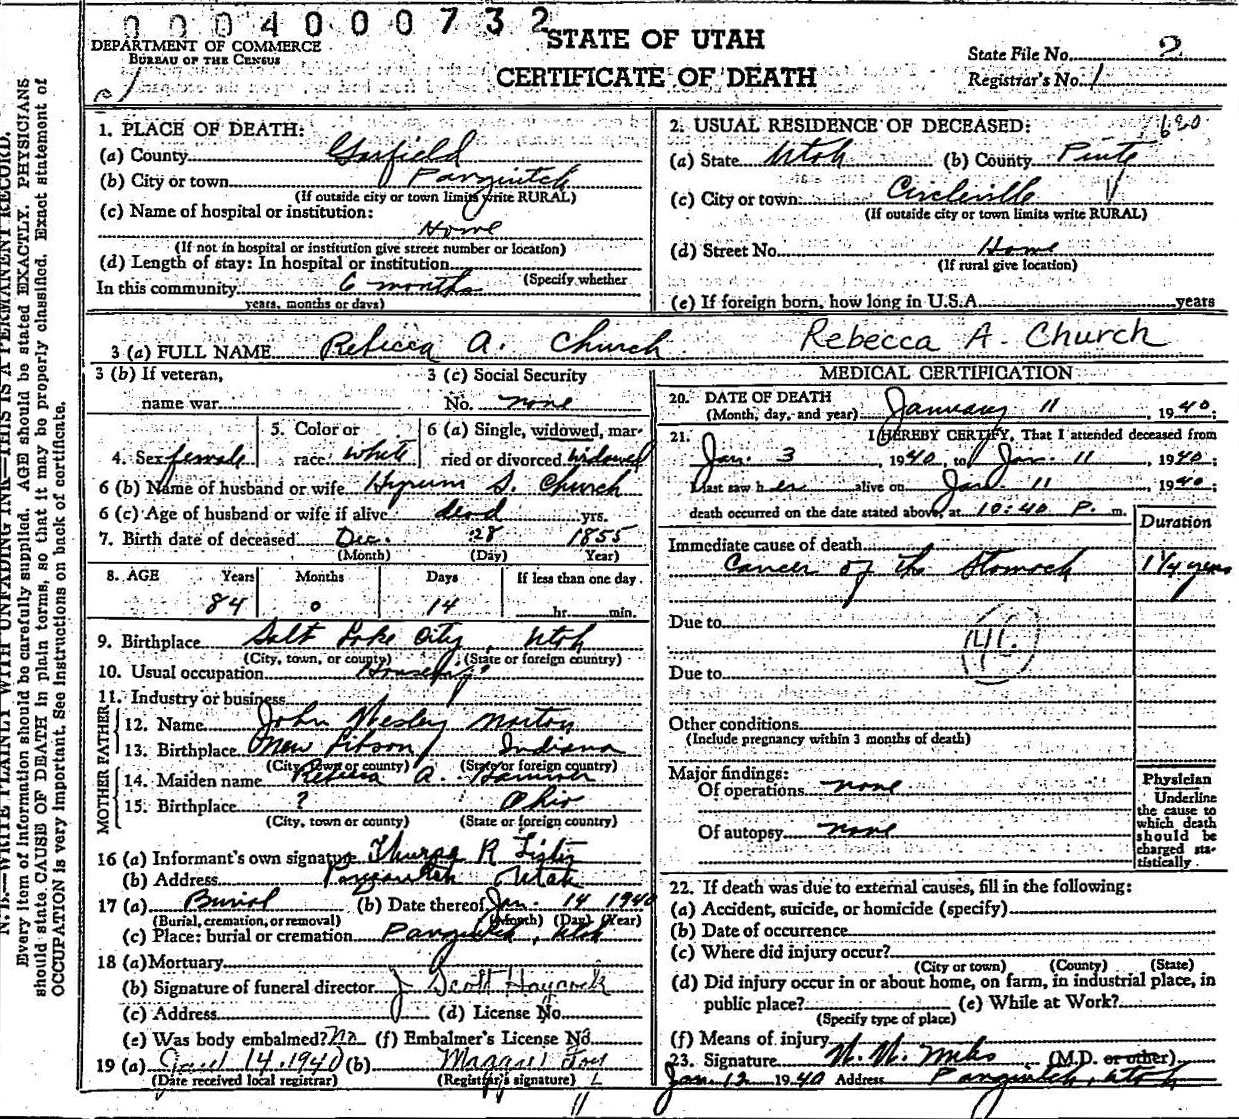 0004000732
DEPARTMENT OF COMMERCE
BUREAU OF THE CENSUS
STATE OF UTAH
CERTIFICATE OF DEATH
State File No. 2
Registrar's No. 1
N. B.—WRITE PLAINLY WITH UNFADING INK—THIS IS A PERMANENT RECORD.
Every item of information should be carefully supplied. AGE should be stated EXACTLY. PHYSICIANS
should state CAUSE OF DEATH in plain terms, so that it may be properly classified. Exact statement of
OCCUPATION is very important. See instructions on back of certificate.
1. PLACE OF DEATH:
(a) County Garfield
(b) City or town Panguitch
(If outside city or town limits write RURAL)
(c) Name of hospital or institution:
Home
(If not in hospital or institution give street number or location)
(d) Length of stay: In hospital or institution
(Specify whether
In this community 6 months
years, months or days)
2. USUAL RESIDENCE OF DECEASED: 680
(a) State Utah (b) County Piute
(c) City or town Circleville
(If outside city or town limits write RURAL)
(d) Street No. Home
(If rural give location)
(e) If foreign born, how long in U.S.A. years
3 (a) FULL NAME Rebecca A. Church Rebecca A. Church
3 (b) If veteran,
name war
3 (c) Social Security
No. none
4. Sex female
5. Color or
race white
6 (a) Single, widowed, mar-
ried or divorced widowed
6 (b) Name of husband or wife Hyrum S. Church
6 (c) Age of husband or wife if alive dead yrs.
7. Birth date of deceased Dec. 28 1855
(Month) (Day) Year)
8. AGE Years Months Days If less than one day
84 0 14 hr. min.
9. Birthplace Salt Lake City, Utah
(City, town, or county) (State or foreign country)
10. Usual occupation Housewife
11. Industry or business
FATHER
12. Name John Wesley Norton
13. Birthplace New Lisbon Indiana
(City, town or county) (State or foreign country)
MOTHER
14. Maiden name Rebecca A. Hammer
15. Birthplace ? Ohio
(City, town or county) (State or foreign country)
16 (a) Informant's own signature R Lister
(b) Address Panguitch Utah
17 (a) Burial (b) Date thereof Jan. 14 1940
(Burial, cremation, or removal) (Month) (Day) (Year)
(c) Place: burial or cremation Panguitch, Utah
18 (a) Mortuary
(b) Signature of funeral director J. Scott Haycock
(c) Address (d) License No.
(e) Was body embalmed? No (f) Embalmer's License No.
19 (a) Jan 14 1940 (b)
(Date received local registrar) (Registrar's signature)
MEDICAL CERTIFICATION
20. DATE OF DEATH
(Month, day, and year) January 11, 1940;
21. I HEREBY CERTIFY, That I attended deceased from
Jan. 3, 1940, to Jan. 11, 1940;
I last saw her alive on Jan 11, 1940;
death occurred on the date stated above, at 10:40 P. m.
Duration
Immediate cause of death
Cancer of the Stomach 1 1/4 years
Due to
46.
Due to
Other conditions
(Include pregnancy within 3 months of death)
Major findings:
Of operations none
Of autopsy none
Physician
Underline
the cause to
which death
should be
charged sta-
tistically.
22. If death was due to external causes, fill in the following:
(a) Accident, suicide, or homicide (specify)
(b) Date of occurrence
(c) Where did injury occur?
(City or town) (County) (State)
(d) Did injury occur in or about home, on farm, in industrial place, in
public place? (e) While at Work?
(Specify type of place)
(f) Means of injury
23. Signature (M.D. or other)
Jan. 12 1940 Address Panguitch, Utah